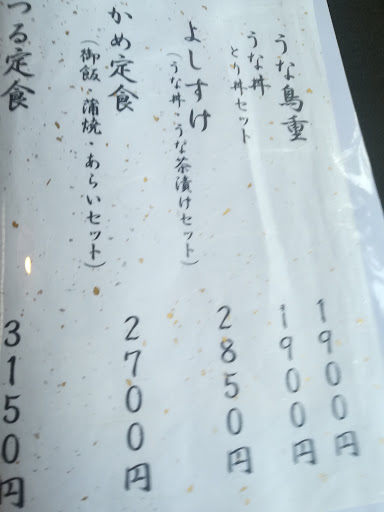 うな鳥重
1900円
うな丼
とり丼セット
1900円
よしすけ
(うな丼・うな茶漬けセット)
2850円
かめ定食
(御飯・蒲焼・あらいセット)
2700円
つる定食
3150円